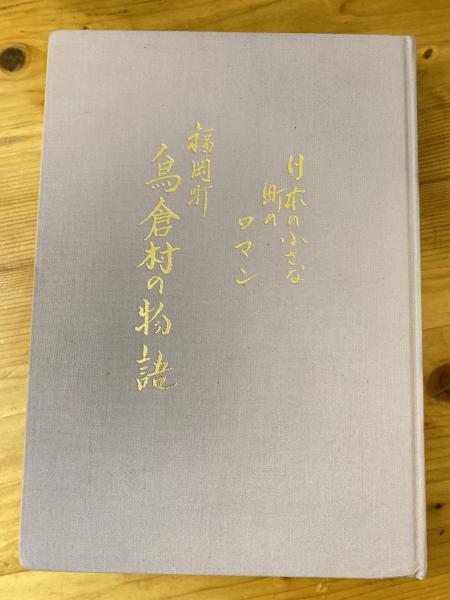 日本の小さな
町の
ロマン
福岡町
鳥倉村の物語